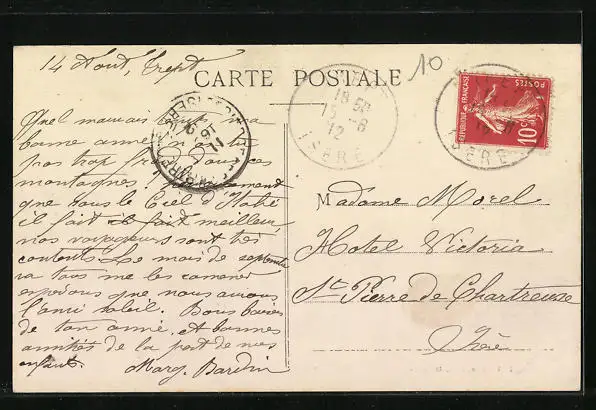 14 Aout, Trept
CARTE POSTALE
10
18 50
15 -8
12
ISÈRE
ISÈRE
RÉPUBLIQUE FRANÇAISE
POSTES
10c
Quel mauvais temps,
bonne amie n'as tu
pas trop froid dans ces
montagnes
que sous le Ciel d'Italie
il fait il fait meilleur,
nos voyageurs sont très
contents. Le mois de septembre
va tous me les ramener
espérons que nous aurons
l'ami soleil. Bons baisers
de ton amie, et bonnes
amitiés de la part de mes
enfants. Marg. Bardin
Madame Morel
Hotel Victoria
St Pierre de Chartreuse
Isère